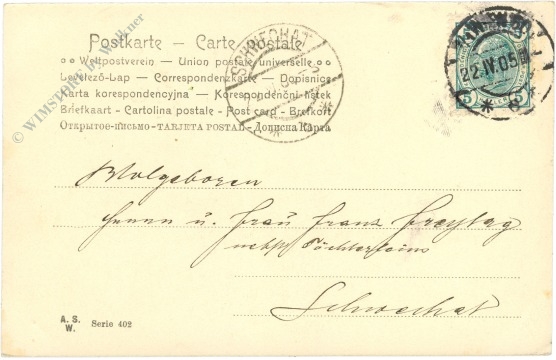 Postkarte — Carte postale
Weltpostverein — Union postale universelle
Levelező-Lap — Correspondenzkarte — Dopisnice
Karta korespondencyjna — Korespondenční lístek
Briefkaart - Cartolina postale - Post card - Brefkort
Открытое-письмо - TARJETA POSTAL - Дописна Карта
SCHWECHAT
22.IV.05
5
5
© WIMSTORE by
Wolgeboren
Herrn u. Frau Franz Freytag
nebst Töchterlein
Schwechat
A. S.
W.
Serie 402